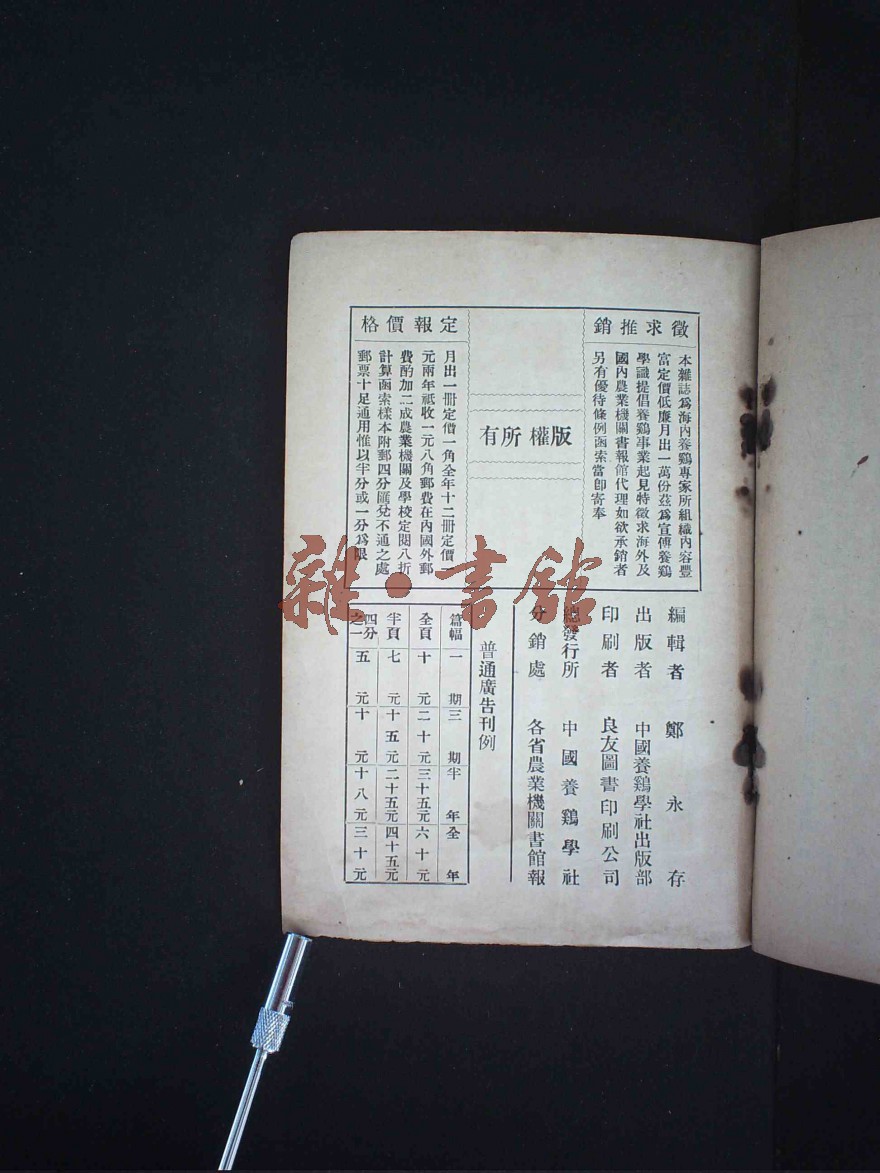 徵求推銷
本雜誌爲海內養鷄專家所組織內容豐
富定價低廉月出一萬份茲爲宣傳養鷄
學識提倡養鷄事業起見特徵求海外及
國內農業機關書報館代理如欲承銷者
另有優待條例函索當卽寄奉
版權所有
定報價格
月出一冊定價一角全年十二冊定價一
元兩年祇收一元八角郵費在內國外郵
費酌加二成農業機關及學校定閱八折
計算函索樣本附郵四分匯兌不通之處
郵票十足通用惟以半分或一分爲限
編輯者 鄭永存
出版者 中國養鷄學社出版部
印刷者 良友圖書印刷公司
總發行所 中國養鷄學社
分銷處 各省農業機關書館報
普通廣告刊例
篇幅 一期 三期 半年 全年
全頁 十元 二十元 三十五元 六十元
半頁 七元 十五元 二十五元 四十五元
四分之一 五元 十元 十八元 三十元
雜·書館